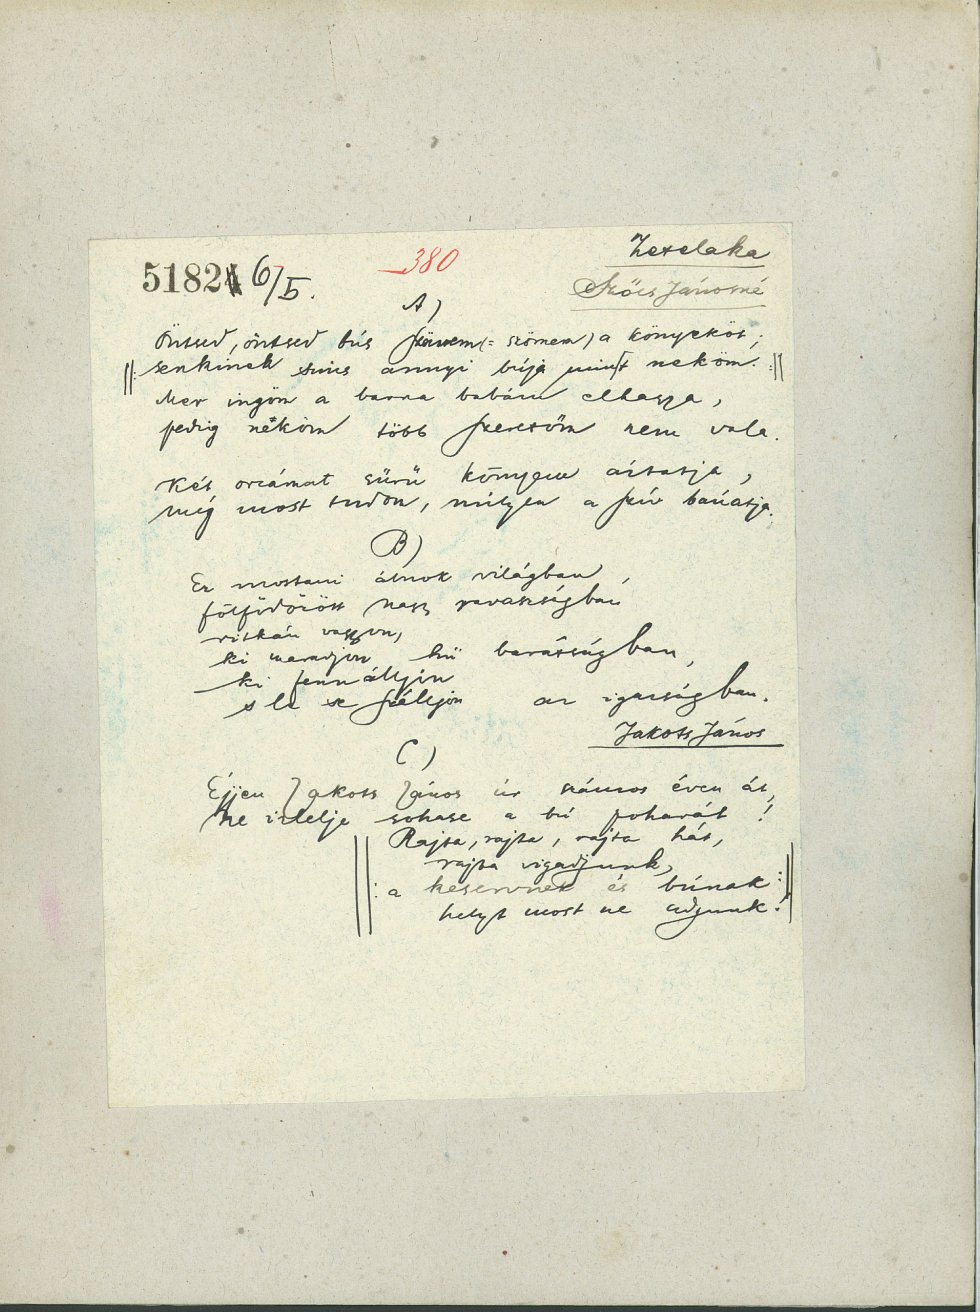 51824 6/5.
380
Zetelaka
Szőcs Jánosné
A)
Öntsed, öntsed bús szömem (= szömem) a könyeköt;
||: senkinek sincs annyi búja mint neköm. :||
Mer ingöm a barna babám elhagya,
pedig neköm több szeretőm nem vala.
Két orcámat sürü könyem áztatja,
még most tudom, milyen a szív bánatja.
B)
Ez mostani álnok világban,
fölfödözött nagy ravaszságban
ritkán vagyon,
ki maradjon hü barátságban,
ki fennálljon
s le se szálljon az igazságban.
Jakots János
C)
Éjjen Jakots János úr számos éven át,
Ne izlelje sohase a bú poharát!
Rajta, rajta, rajta hát,
rajta vigadjunk,
||: a keservnek és búnak :||
helyt most ne adjunk!